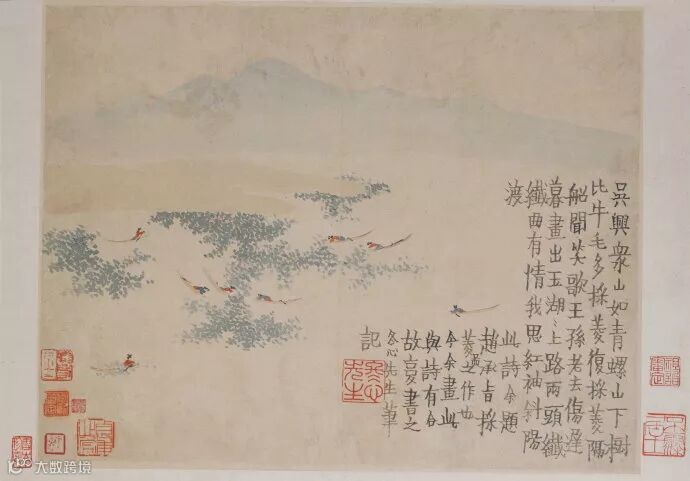 吳興衆山如青螺山下樹
比牛毛多採菱復採菱隔
船聞笑歌王孫老去傷遲
暮畫出玉湖〻上路兩頭纖
纖曲有情我思紅袖斜陽
渡
此詩余題
趙承旨採
菱圖之作也
今余畫此
與詩有合
故復書之
冬心先生筆
記
冬心先生
大数跨境